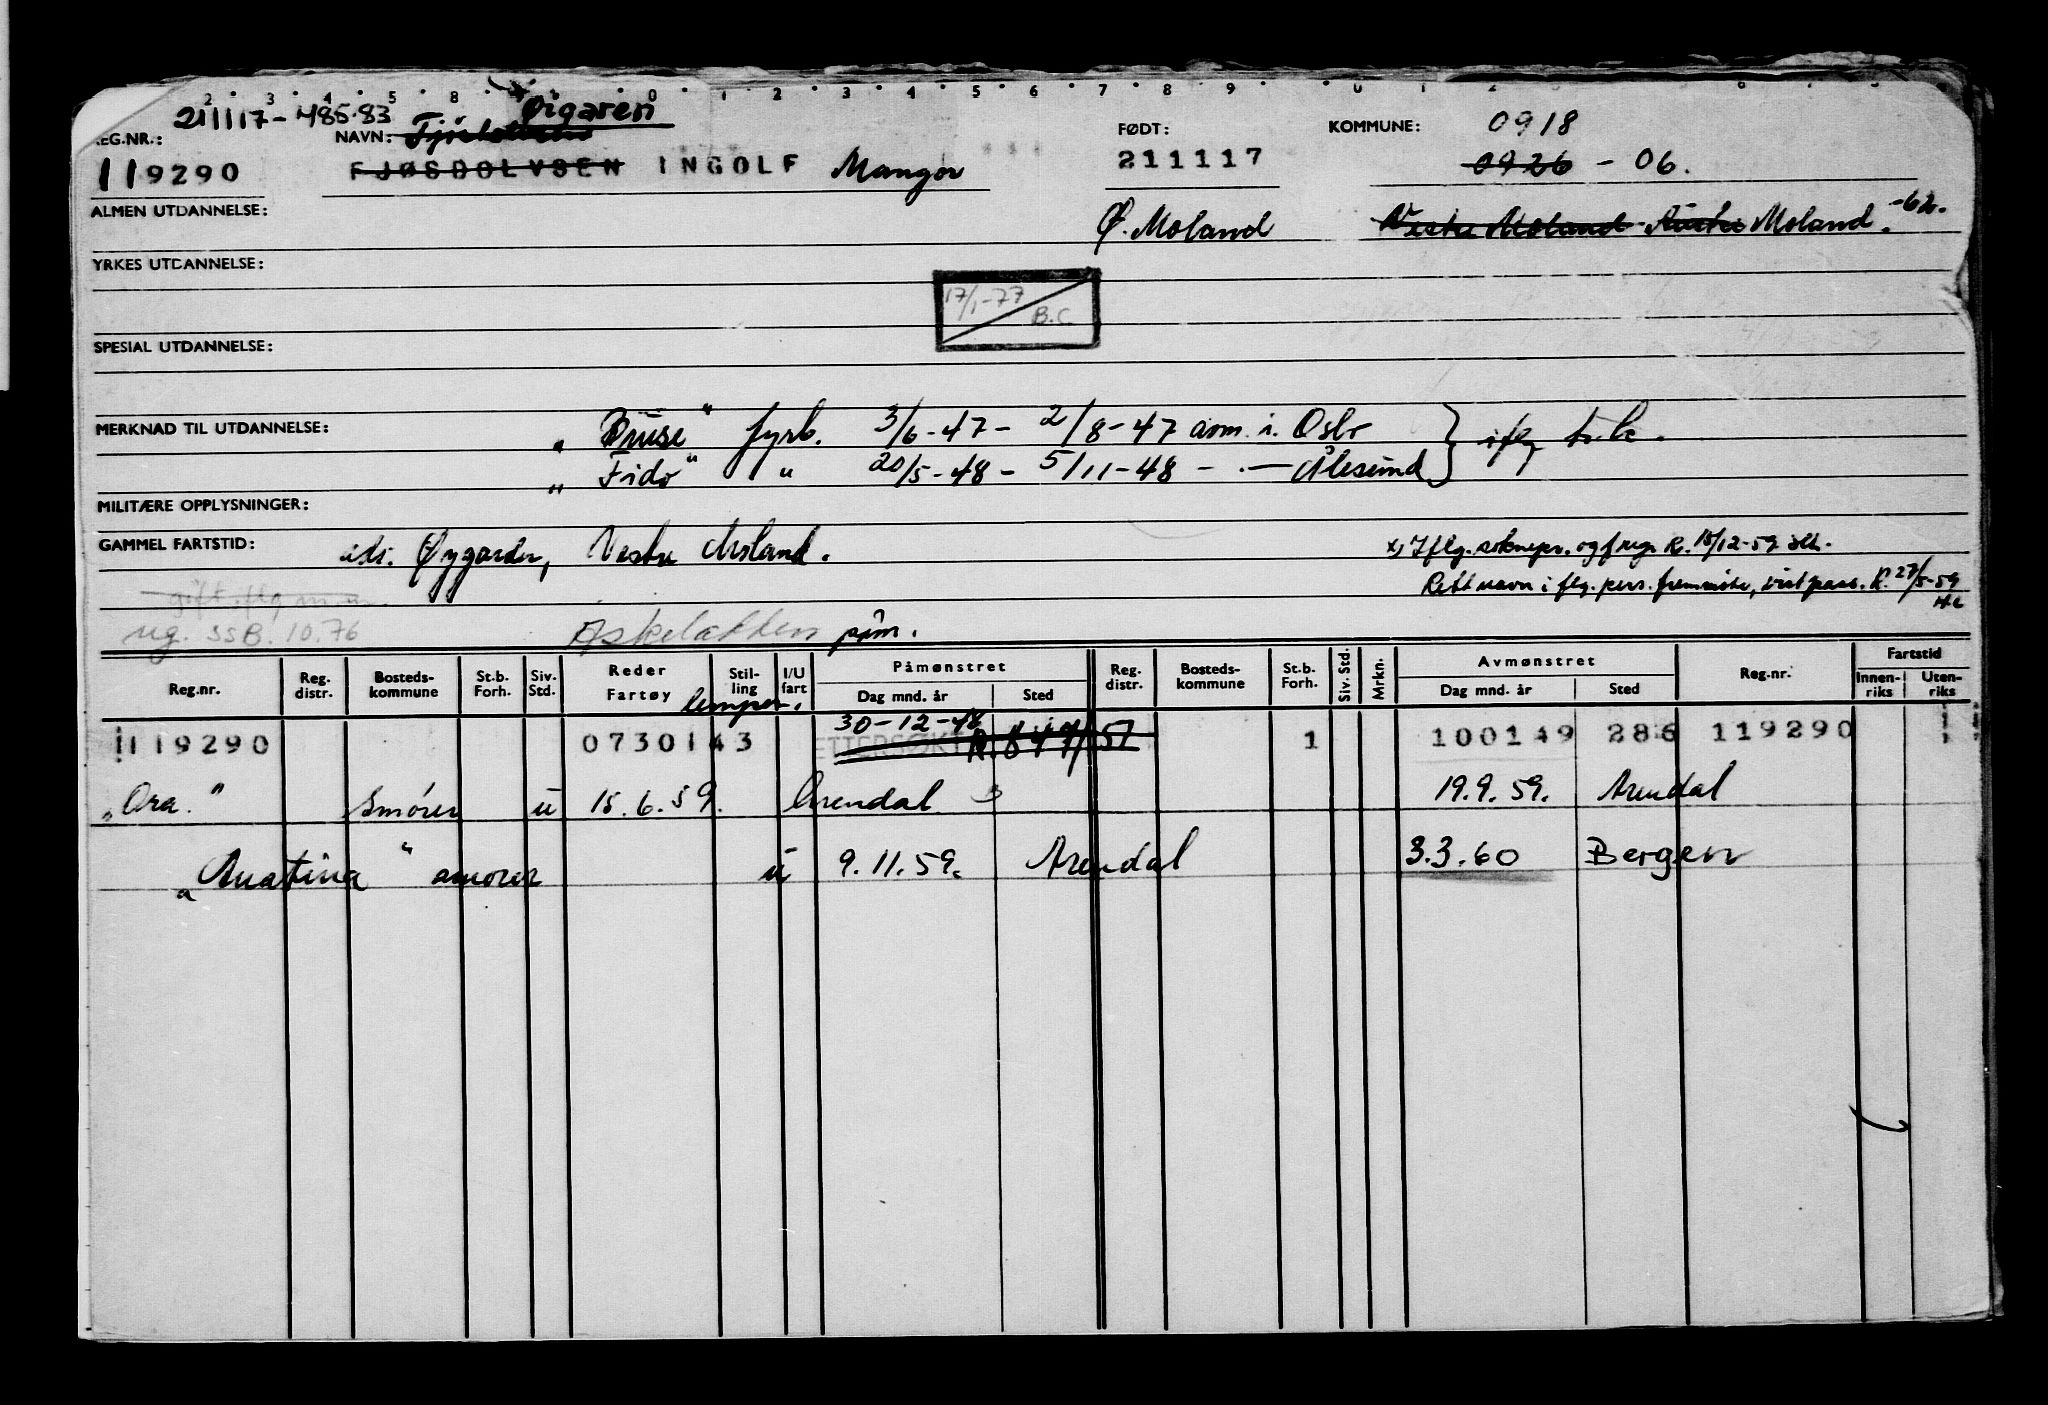 211117-485.83 Øigaren
REG.NR.: NAVN: FØDT: KOMMUNE: 0918
119290 FJØSDOLVSEN INGOLF Mangor 211117 0926 - 06.
ALMEN UTDANNELSE: Ø. Moland Vestre Moland Austre Moland. -62.
YRKES UTDANNELSE:
17/1-77
B.C.
SPESIAL UTDANNELSE:
MERKNAD TIL UTDANNELSE: " fyrb. 3/6-47 - 2/8-47 avm. i. Oslo } iflg
„ Fido " " 20/5-48 - 5/11-48 - Ålesund
MILITÆRE OPPLYSNINGER:
GAMMEL FARTSTID: Vestre Moland. x) Iflg. soknepr. og freg. R. 15/12-59
Rett navn i flg. pers. fremmøte, vist pass. R. 27/5-59
reg. SSB. 10.76 Askeladden påm.
Reg.nr. Reg. distr. Bosteds-kommune St.b. Forh. Siv. Std. Reder Fartøy Stil-ling I/U fart Påmønstret Dag mnd. år Sted Reg. distr. Bosteds-kommune St.b. Forh. Siv. Std. Mrkn. Avmønstret Dag mnd. år Sted Reg.nr. Fartstid Innen-riks Uten-riks
lemper.
30-12-48
119290 0730143 ETTERSØKT R. 847/57 1 100149 286 119290
„Ora." smører u 15.6.59. Arendal 19.9.59. Arendal
„Anatina" smører u 9.11.59. Arendal 3.3.60 Bergen